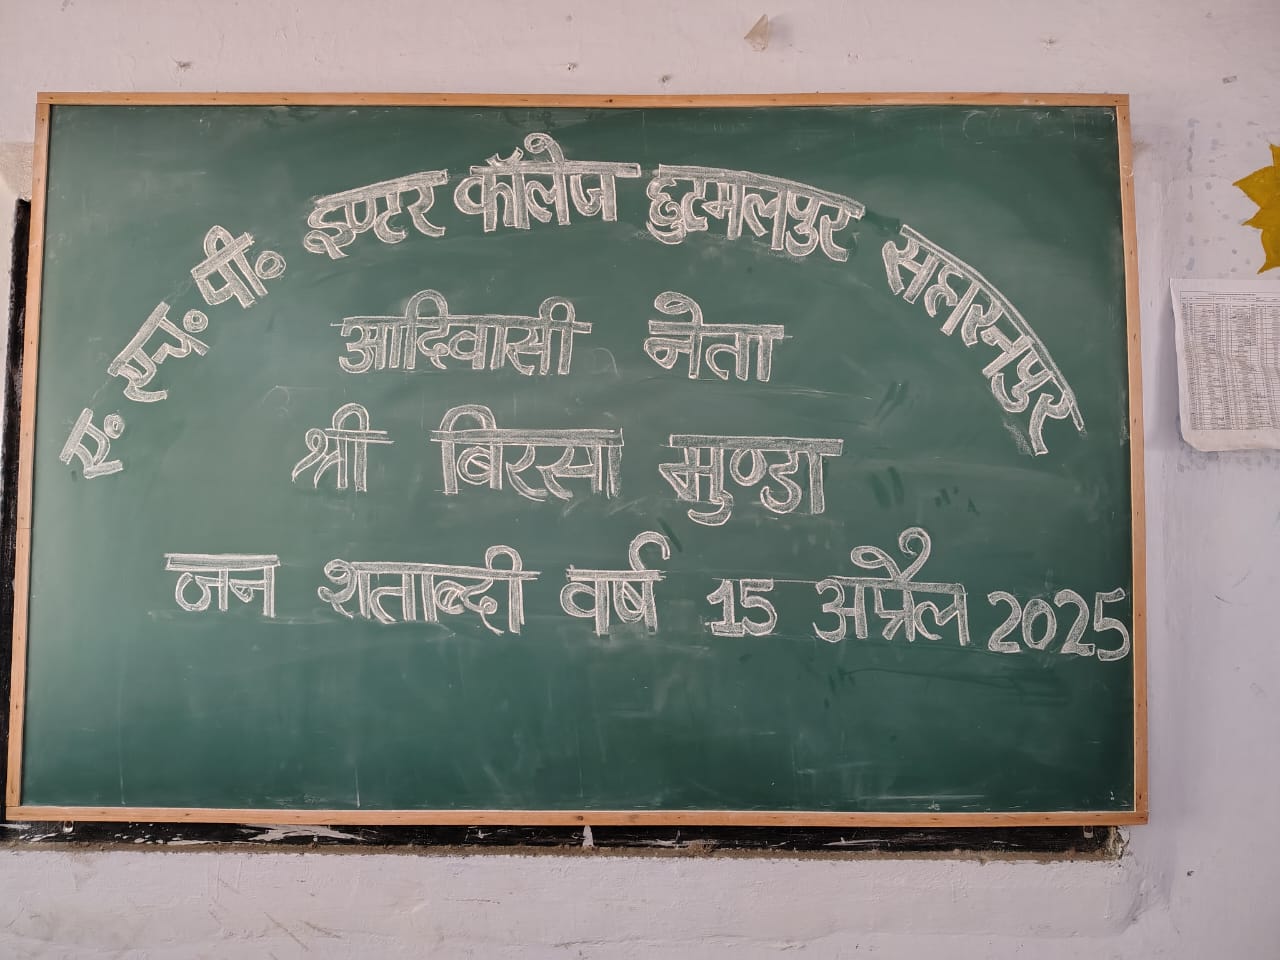 ए. एच. पी. इण्टर कॉलेज छुटमलपुर सहारनपुर
आदिवासी नेता
श्री बिरसा मुण्डा
जन शताब्दी वर्ष 15 अप्रैल 2025